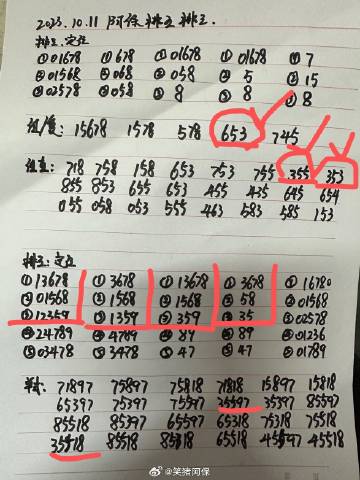 2023.10.11 阿保 排三 排三
排三:定位
①01678 ①678 ①01678 ①01678 ①7
②01568 ②068 ②058 ②5 ②15
③02578 ③058 ③8 ③8 ③8
组/直: 15678 1578 578 653 745
组直: 718 758 158 653 753 755 355 353
855 853 655 653 455 435 645 654
055 058 053 555 463 583 585 153
排五:定位
①13678 ①3678 ①13678 ①3678 ①16780
②01568 ②1568 ②1568 ②58 ②01568
③12359 ③1359 ③359 ③35 ③02578
④24789 ④4789 ④89 ④89 ④01236
⑤03478 ⑤3478 ⑤47 ⑤47 ⑤01789
71897 75897 75818 71818 15897 15818
65397 75397 75597 35597 35397 85597
85518 85397 65597 65318 75318 75518
35518 85518 85318 65518 45597 45518
@笑猪阿保